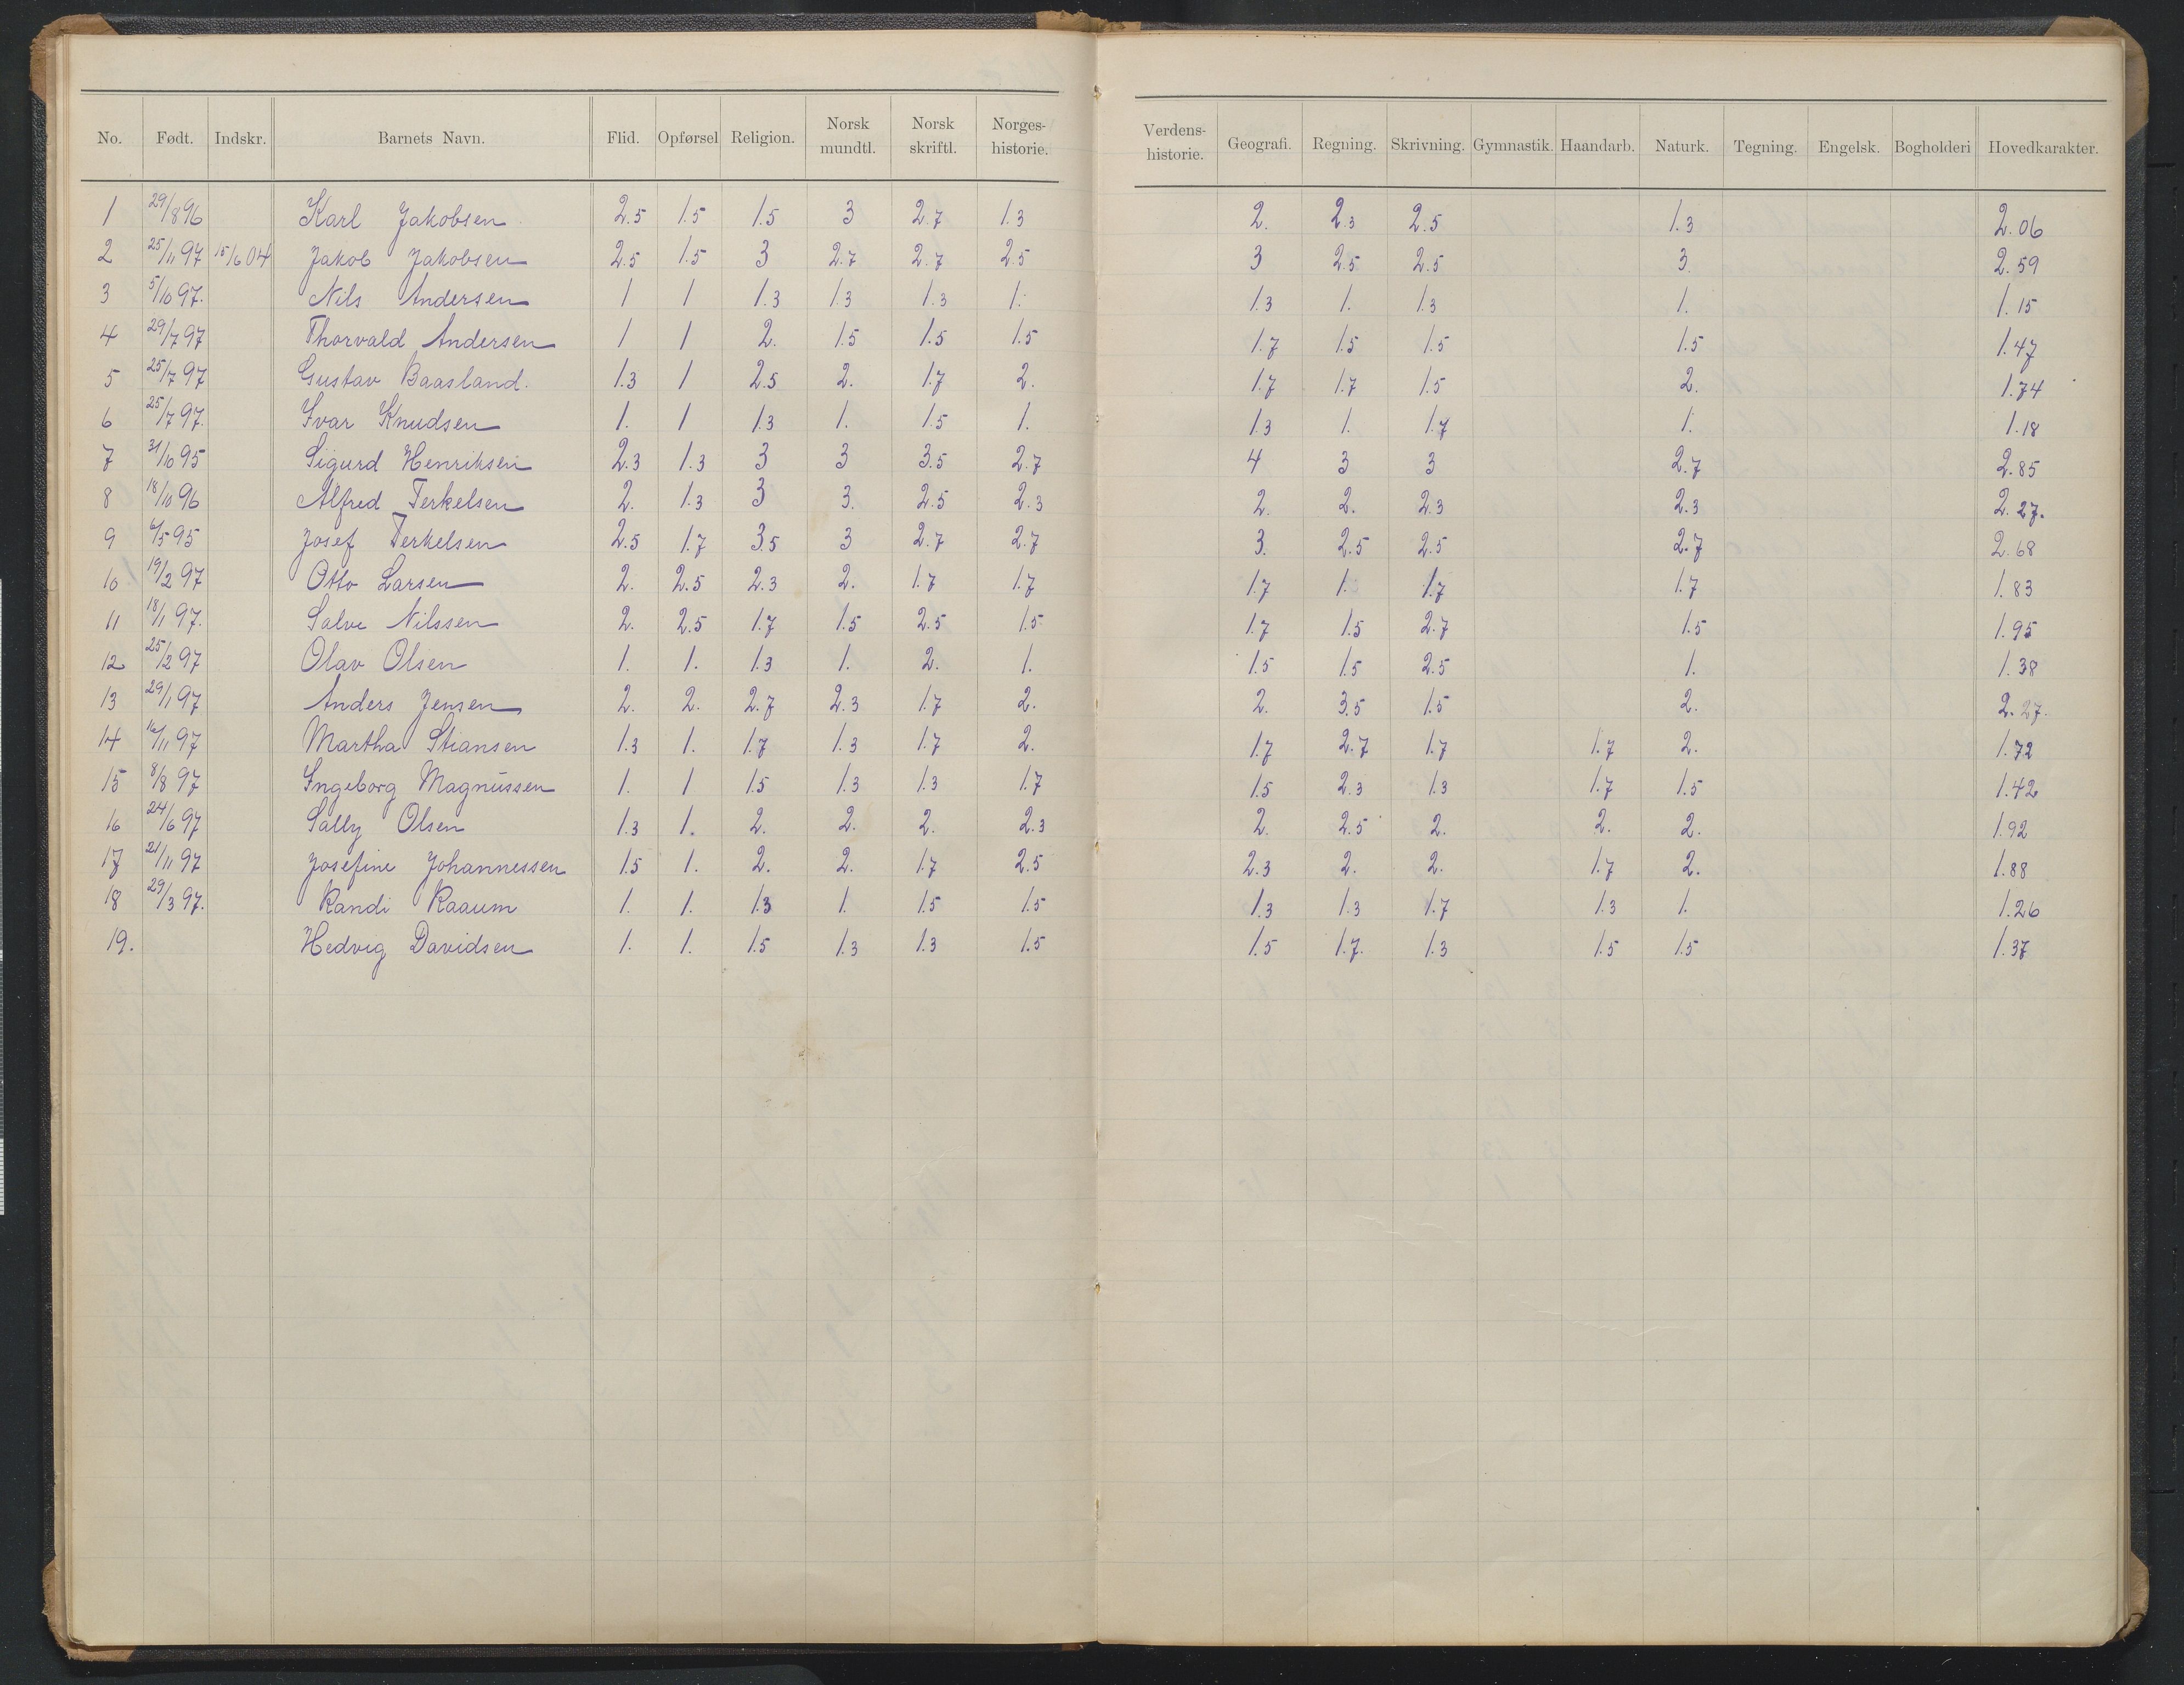 No. Født. Indskr. Barnets Navn. Flid. Opførsel Religion. Norsk mundtl. Norsk skriftl. Norges-historie. Verdens-historie. Geografi. Regning. Skrivning. Gymnastik. Haandarb. Naturk. Tegning. Engelsk. Bogholderi Hovedkarakter.
1 29/8 96 Karl Jakobsen 2.5 1.5 1.5 3 2.7 1.3 2. 2.3 2.5 1.3 2.06
2 25/11 97 15/6 04 Jakob Jakobsen 2.5 1.5 3 2.7 2.7 2.5 3 2.5 2.5 3. 2.59
3 5/10 97. Nils Andersen 1 1 1.3 1.3 1.3 1. 1.3 1. 1.3 1. 1.15
4 29/7 97 Thorvald Andersen 1 1 2. 1.5 1.5 1.5 1.7 1.5 1.5 1.5 1.47
5 25/7 97 Gustav Baasland. 1.3 1 2.5 2. 1.7 2. 1.7 1.7 1.5 2. 1.74
6 25/7 97. Ivar Knudsen 1. 1 1.3 1. 1.5 1. 1.3 1. 1.7 1. 1.18
7 31/10 95 Sigurd Henriksen 2.3 1.3 3 3 3.5 2.7 4 3 3 2.7 2.85
8 18/10 96 Alfred Terkelsen 2. 1.3 3 3. 2.5 2.3 2. 2. 2.3 2.3 2.27.
9 6/5 95 Josef Terkelsen 2.5 1.7 3.5 3 2.7 2.7 3. 2.5 2.5 2.7 2.68
10 19/2 97 Otto Larsen 2. 2.5 2.3 2. 1.7 1.7 1.7 1. 1.7 1.7 1.83
11 18/1 97. Salve Nilssen 2. 2.5 1.7 1.5 2.5 1.5 1.7 1.5 2.7 1.5 1.95
12 25/2 97 Olav Olsen 1. 1. 1.3 1. 2. 1. 1.5 1.5 2.5 1. 1.38
13 29/1 97 Anders Jensen 2. 2. 2.7 2.3 1.7 2. 2. 3.5 1.5 2. 2.27.
14 16/11 97 Martha Stiansen 1.3 1. 1.7 1.3 1.7 2. 1.7 2.7 1.7 1.7 2. 1.72
15 8/8 97 Ingeborg Magnussen 1. 1 1.5 1.3 1.3 1.7 1.5 2.3 1.3 1.7 1.5 1.42
16 24/6 97 Sally Olsen 1.3 1. 2. 2. 2. 2.3 2. 2.5 2. 2. 2. 1.92
17 21/11 97 Josefine Johannessen 1.5 1. 2. 2. 1.7 2.5 2.3 2. 2. 1.7 2. 1.88
18 29/3 97. Randi Raaum 1. 1. 1.3 1. 1.5 1.5 1.3 1.3 1.7 1.3 1. 1.26
19. Hedvig Davidsen 1. 1. 1.5 1.3 1.3 1.5 1.5 1.7. 1.3 1.5 1.5 1.37